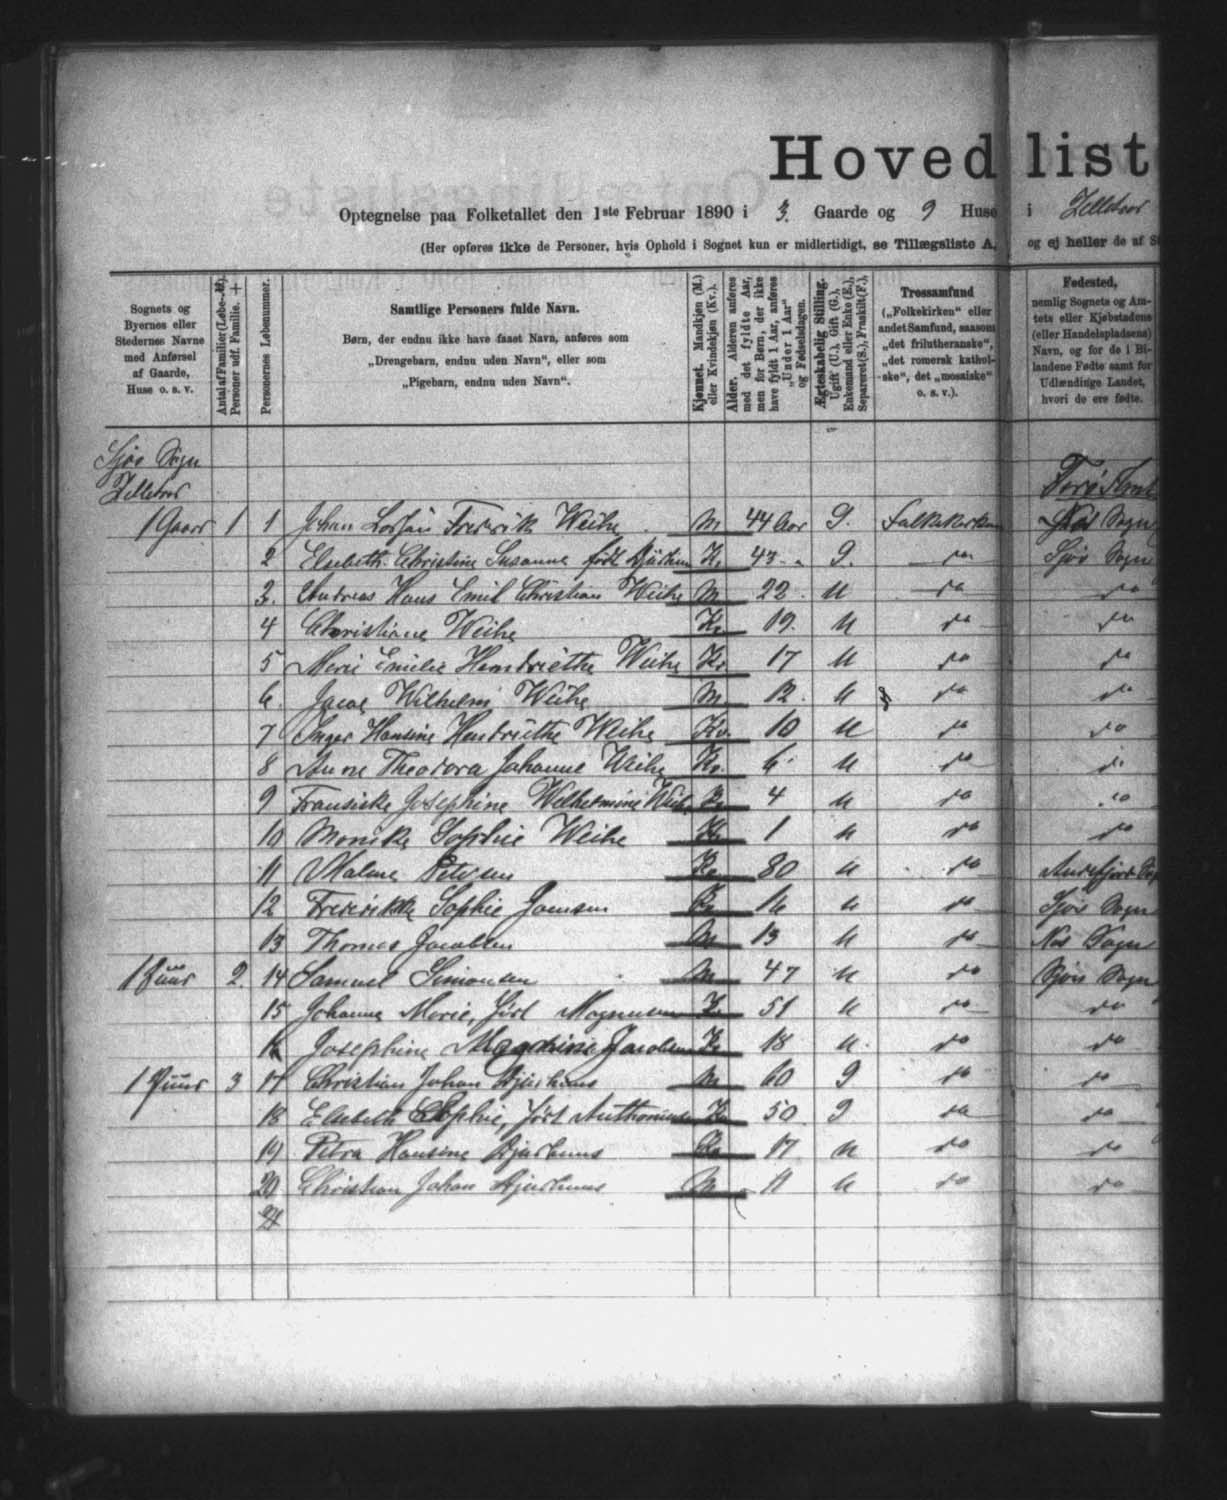 Hovedlist
Optegnelse paa Folketallet den 1ste Februar 1890 i 3. Gaarde og 9 Huse i Zelletræ
(Her opføres ikke de Personer, hvis Ophold i Sognet kun er midlertidigt, se Tillægsliste A, og ej heller de af
Sognets og Byernes eller Stedernes Navne med Anførsel af Gaarde, Huse o. s. v.
Antal af Familier (Løbe-№). Personer udf. Familie. +
Personernes Løbenummer.
Samtlige Personers fulde Navn.
Børn, der endnu ikke have faaet Navn, anføres som
„Drengebarn, endnu uden Navn“, eller som
„Pigebarn, endnu uden Navn“.
Kjønnet. Mandkjøn (M.) eller Kvindekjøn (Kv.).
Alder. Alderen anføres med det fyldte Aar, men for Børn, der ikke have fyldt 1 Aar, anføres „Under 1 Aar“ og Fødselsdagen.
Ægteskabelig Stilling. Ugift (U.), Gift (G.), Enkemand eller Enke (E.), Separeret (S.), Fraskilt (F.).
Trossamfund („Folkekirken“ eller andet Samfund, saasom „det frilutheranske“, „det romersk katholske“, det „mosaiske“ o. s. v.).
Fødested, nemlig Sognets og Amtets eller Kjøbstadens (eller Handelspladsens) Navn, og for de i Bilandene Fødte samt for Udlændinge Landet, hvori de ere fødte.
Sjøv Sogn
Færø Amt
1 Gaard 1 1 Johan Frederik Weihe M 44 Aar G. Folkekirken Sogn
2 Elsebeth Christine Susanne født Djurhuus K. 43 G. do Sjøv Sogn
3. Andreas Hans Emil Christian Weihe M 22 U do do
4 Christiane Weihe Kv 19. U do do
5 Marie Emilie Hendriette Weihe Kv 17 U do do
6. Jacob Wilhelm Weihe M 12. U do do
7 Inger Hansine Hendriette Weihe Kv. 10 U do do
8 Anne Theodora Johanne Weihe Kv. 6 U do do
9 Fransiska Josephine Wilhelmine Weihe Kv 4 U do do
10 Monika Sophie Weihe Kv 1 U do do
11 Malene Petersen Kv 80 U do
12 Frederikke Sophie Joensen Kv U do Sjøv Sogn
13 Thomas Jacobsen M 13 U do Næs Sogn
1 Huus 2. 14 Samuel Simonsen M 47 U do Sjøv Sogn
15 Johanne Marie, født Magnusen Kv 51 U do do
16 Josephine Jacobsen Kv 18 U. do do
1 Huus 3 17 Christian Johan Djurhuus M 60 G do do
18 Elsebeth Sophie, født Kv 50. G do do
19 Petra Hansine Djurhuus Kv 17. U do do
20 Christian Johan Djurhuus M 11 U do do
21